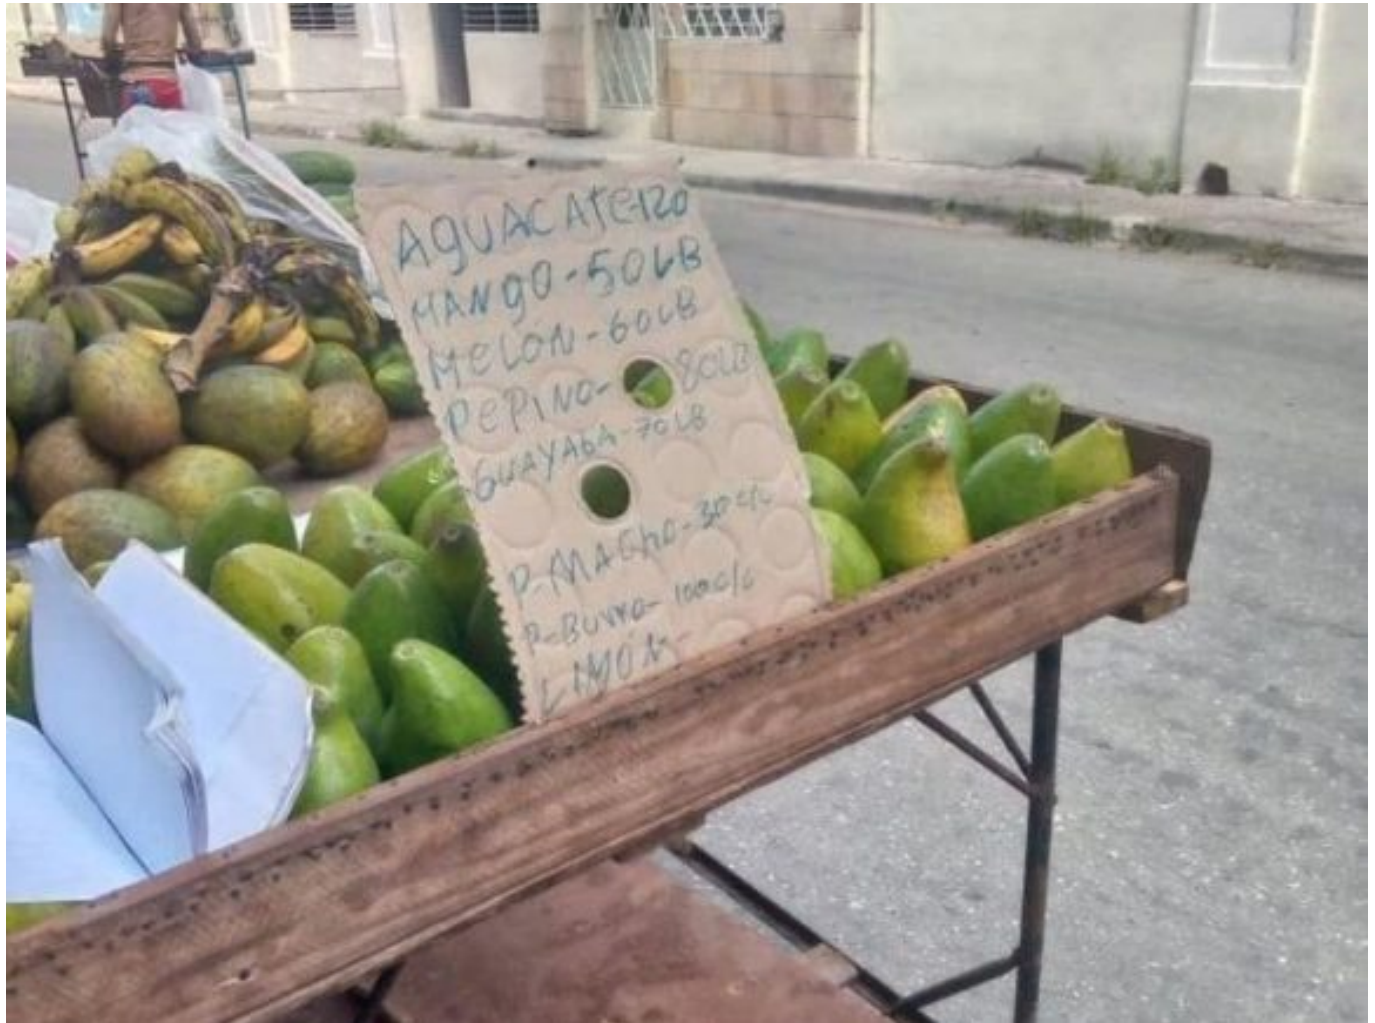 AGUACATE-120
MANGO-50LB
MELON-60LB
PEPINO-80LB
GUAYABA-70LB
P-MACHO-30c/u
P-BURRO-100c/u
LIMÓN-